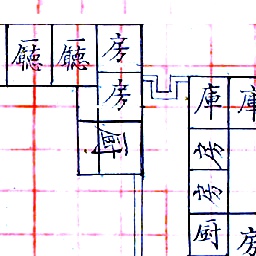 廳 廳 房
房
厨
庫 庫
房
房
厨 房